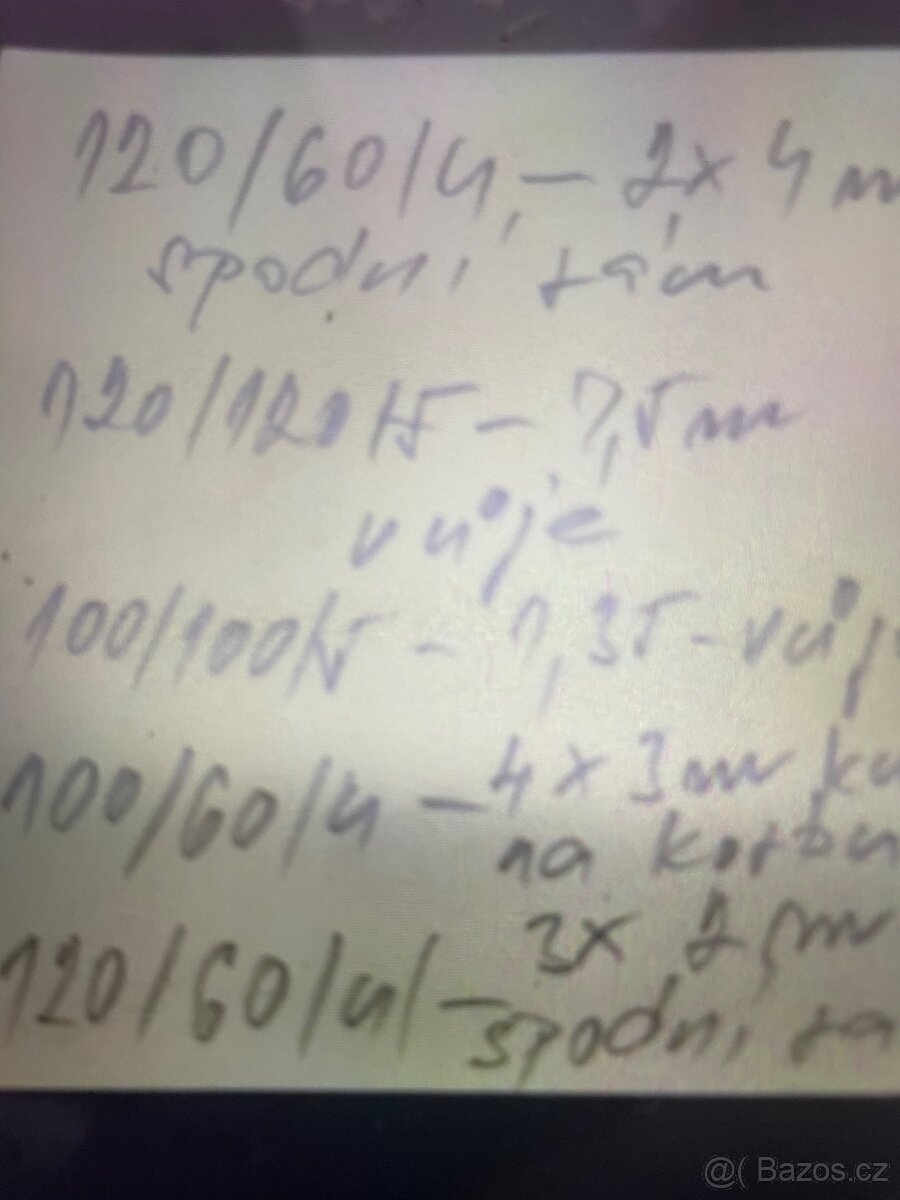 120/60/4 – 2x 4 m
spodní rám
120/120/5 – 7,5 m
vůje
100/100/5 – 1,35 – vůj
100/60/4 – 4 x 3 m ku
na korbu
120/60/4/ – 3x
spodní rá
@( Bazos.cz